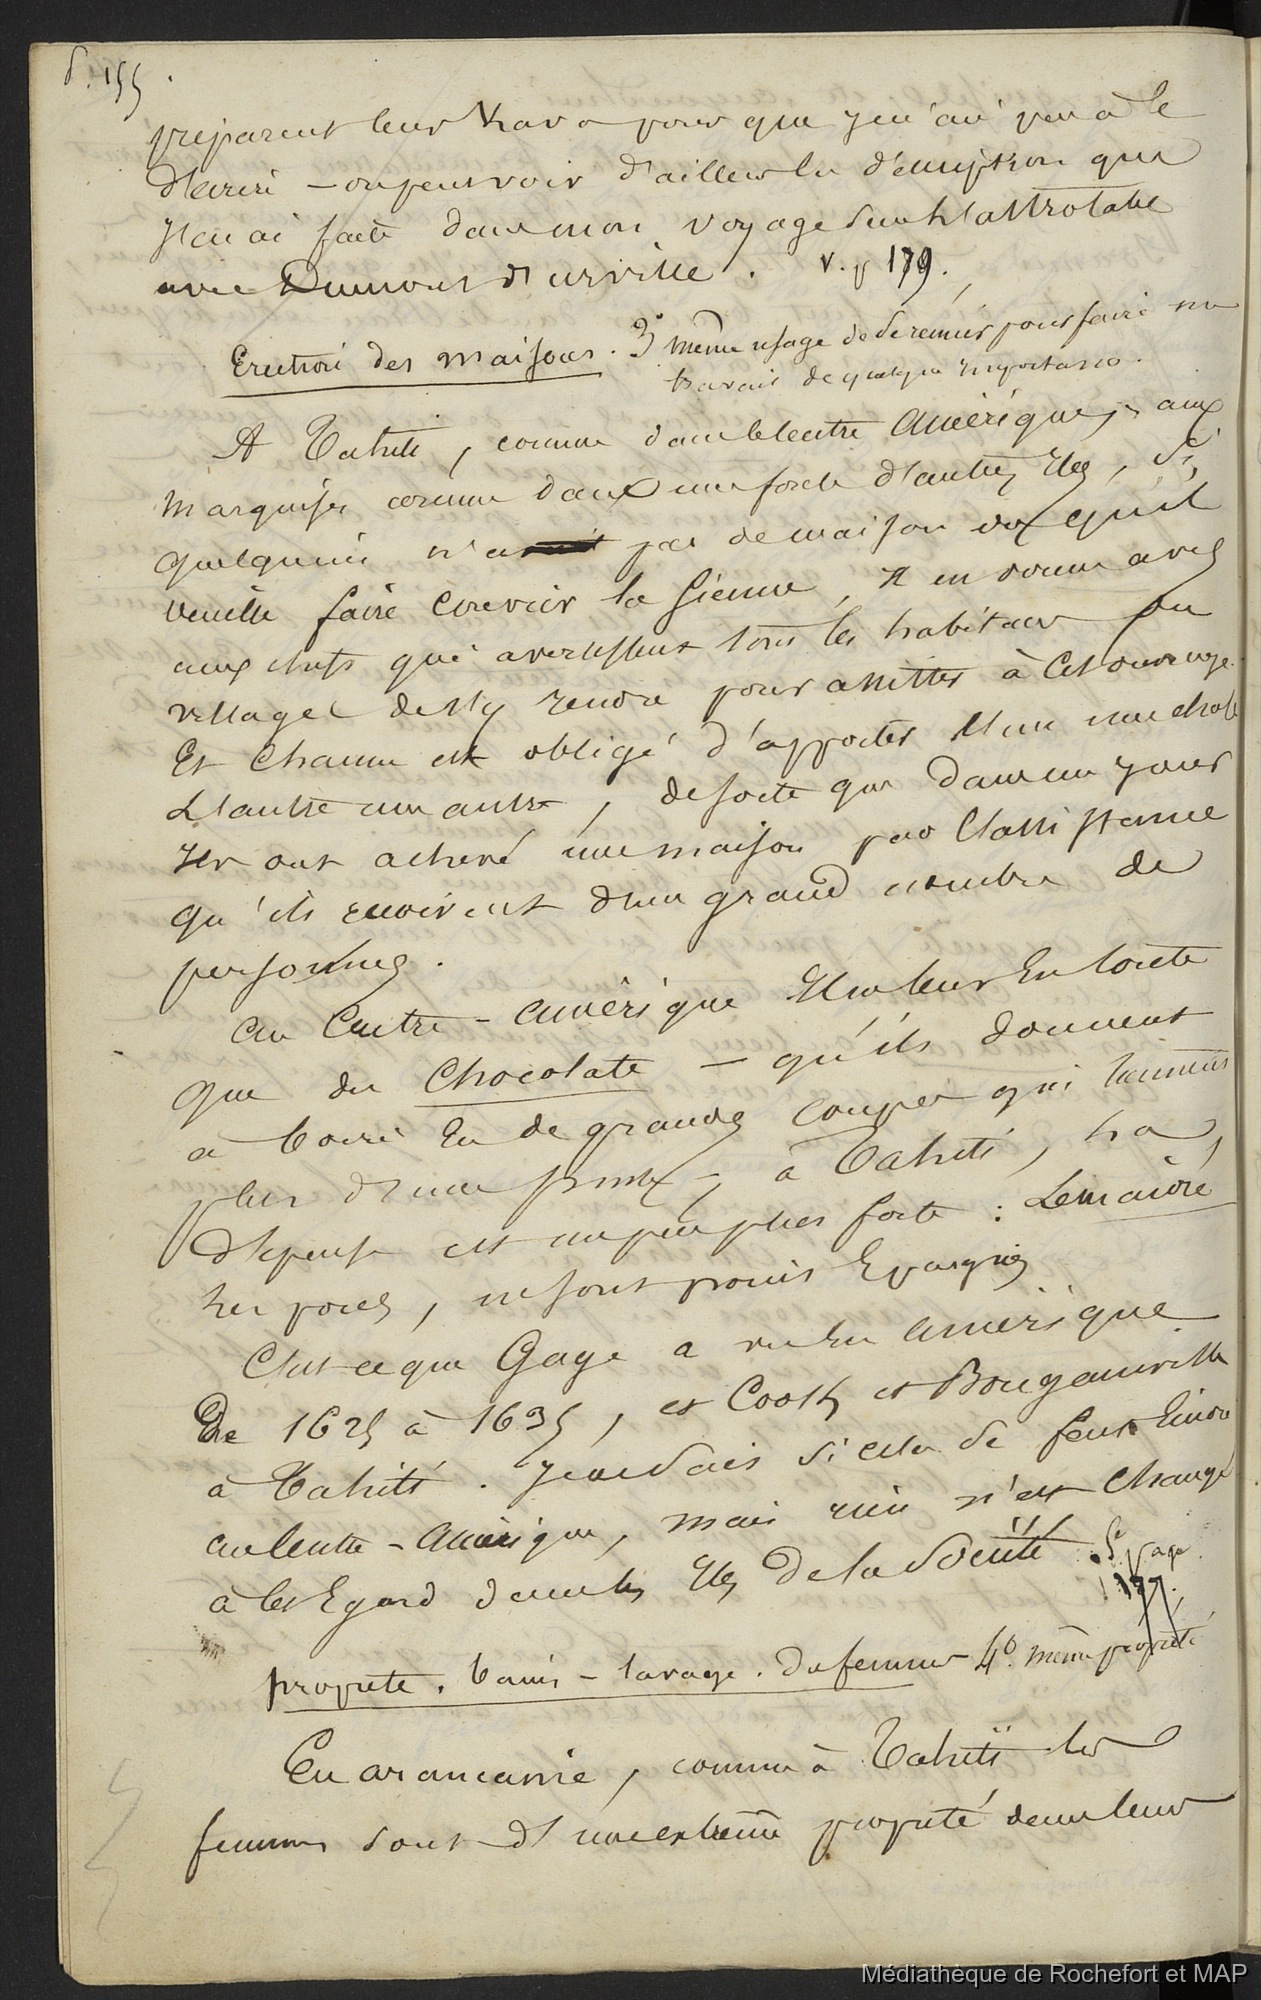 p. 155.
préparent leur Kava pour que j'en aie peu à le
décrire – on peut voir d'ailleurs la description que
j'en ai faite dans mon voyage sur l'astrolabe
avec Dumont d'urville. v. p 179.
Erection des maisons. 3° même usage de se réunir pour faire un
travail de quelque importance.
A Tahiti, comme dans le centre Amérique, aux
marquises comme dans une foule d'autres Iles, si
quelqu'un n'a pas de maison ou qu'il
veuille faire couvrir la sienne, il en donne avis
aux chefs qui avertissent tous les habitans du
village de s'y rendre pour assister à cet ouvrage.
Et chacun est obligé d'apporter l'un une chose
l'autre une autre, de sorte que dans un jour
ils ont achevé une maison par l'assistance
qu'ils reçoivent d'un grand nombre de
personnes.
au Centre – amérique il ne leur en coûte
que du Chocolate – qu'ils donnent
à boire en de grandes coupes qui tiennent
plus d'une pinte – à Tahiti, la
dépense est un peu plus forte : le maïoré,
les porcs, ne sont point épargnés
C'est ce que Gage a vu en amérique
De 1625 à 1635, et Cook et Bougainville
à Tahiti. Je ne sais si cela se fait encore
au centre – Amérique, mais rien n'est changé
à cet Egard dans les Iles de la Société. S. page
177.
propreté. bains – lavage. des femmes 4° même propreté
En arancanie, comme à Tahiti les
femmes sont d'une extrême propreté dans leur
Médiathèque de Rochefort et MAP